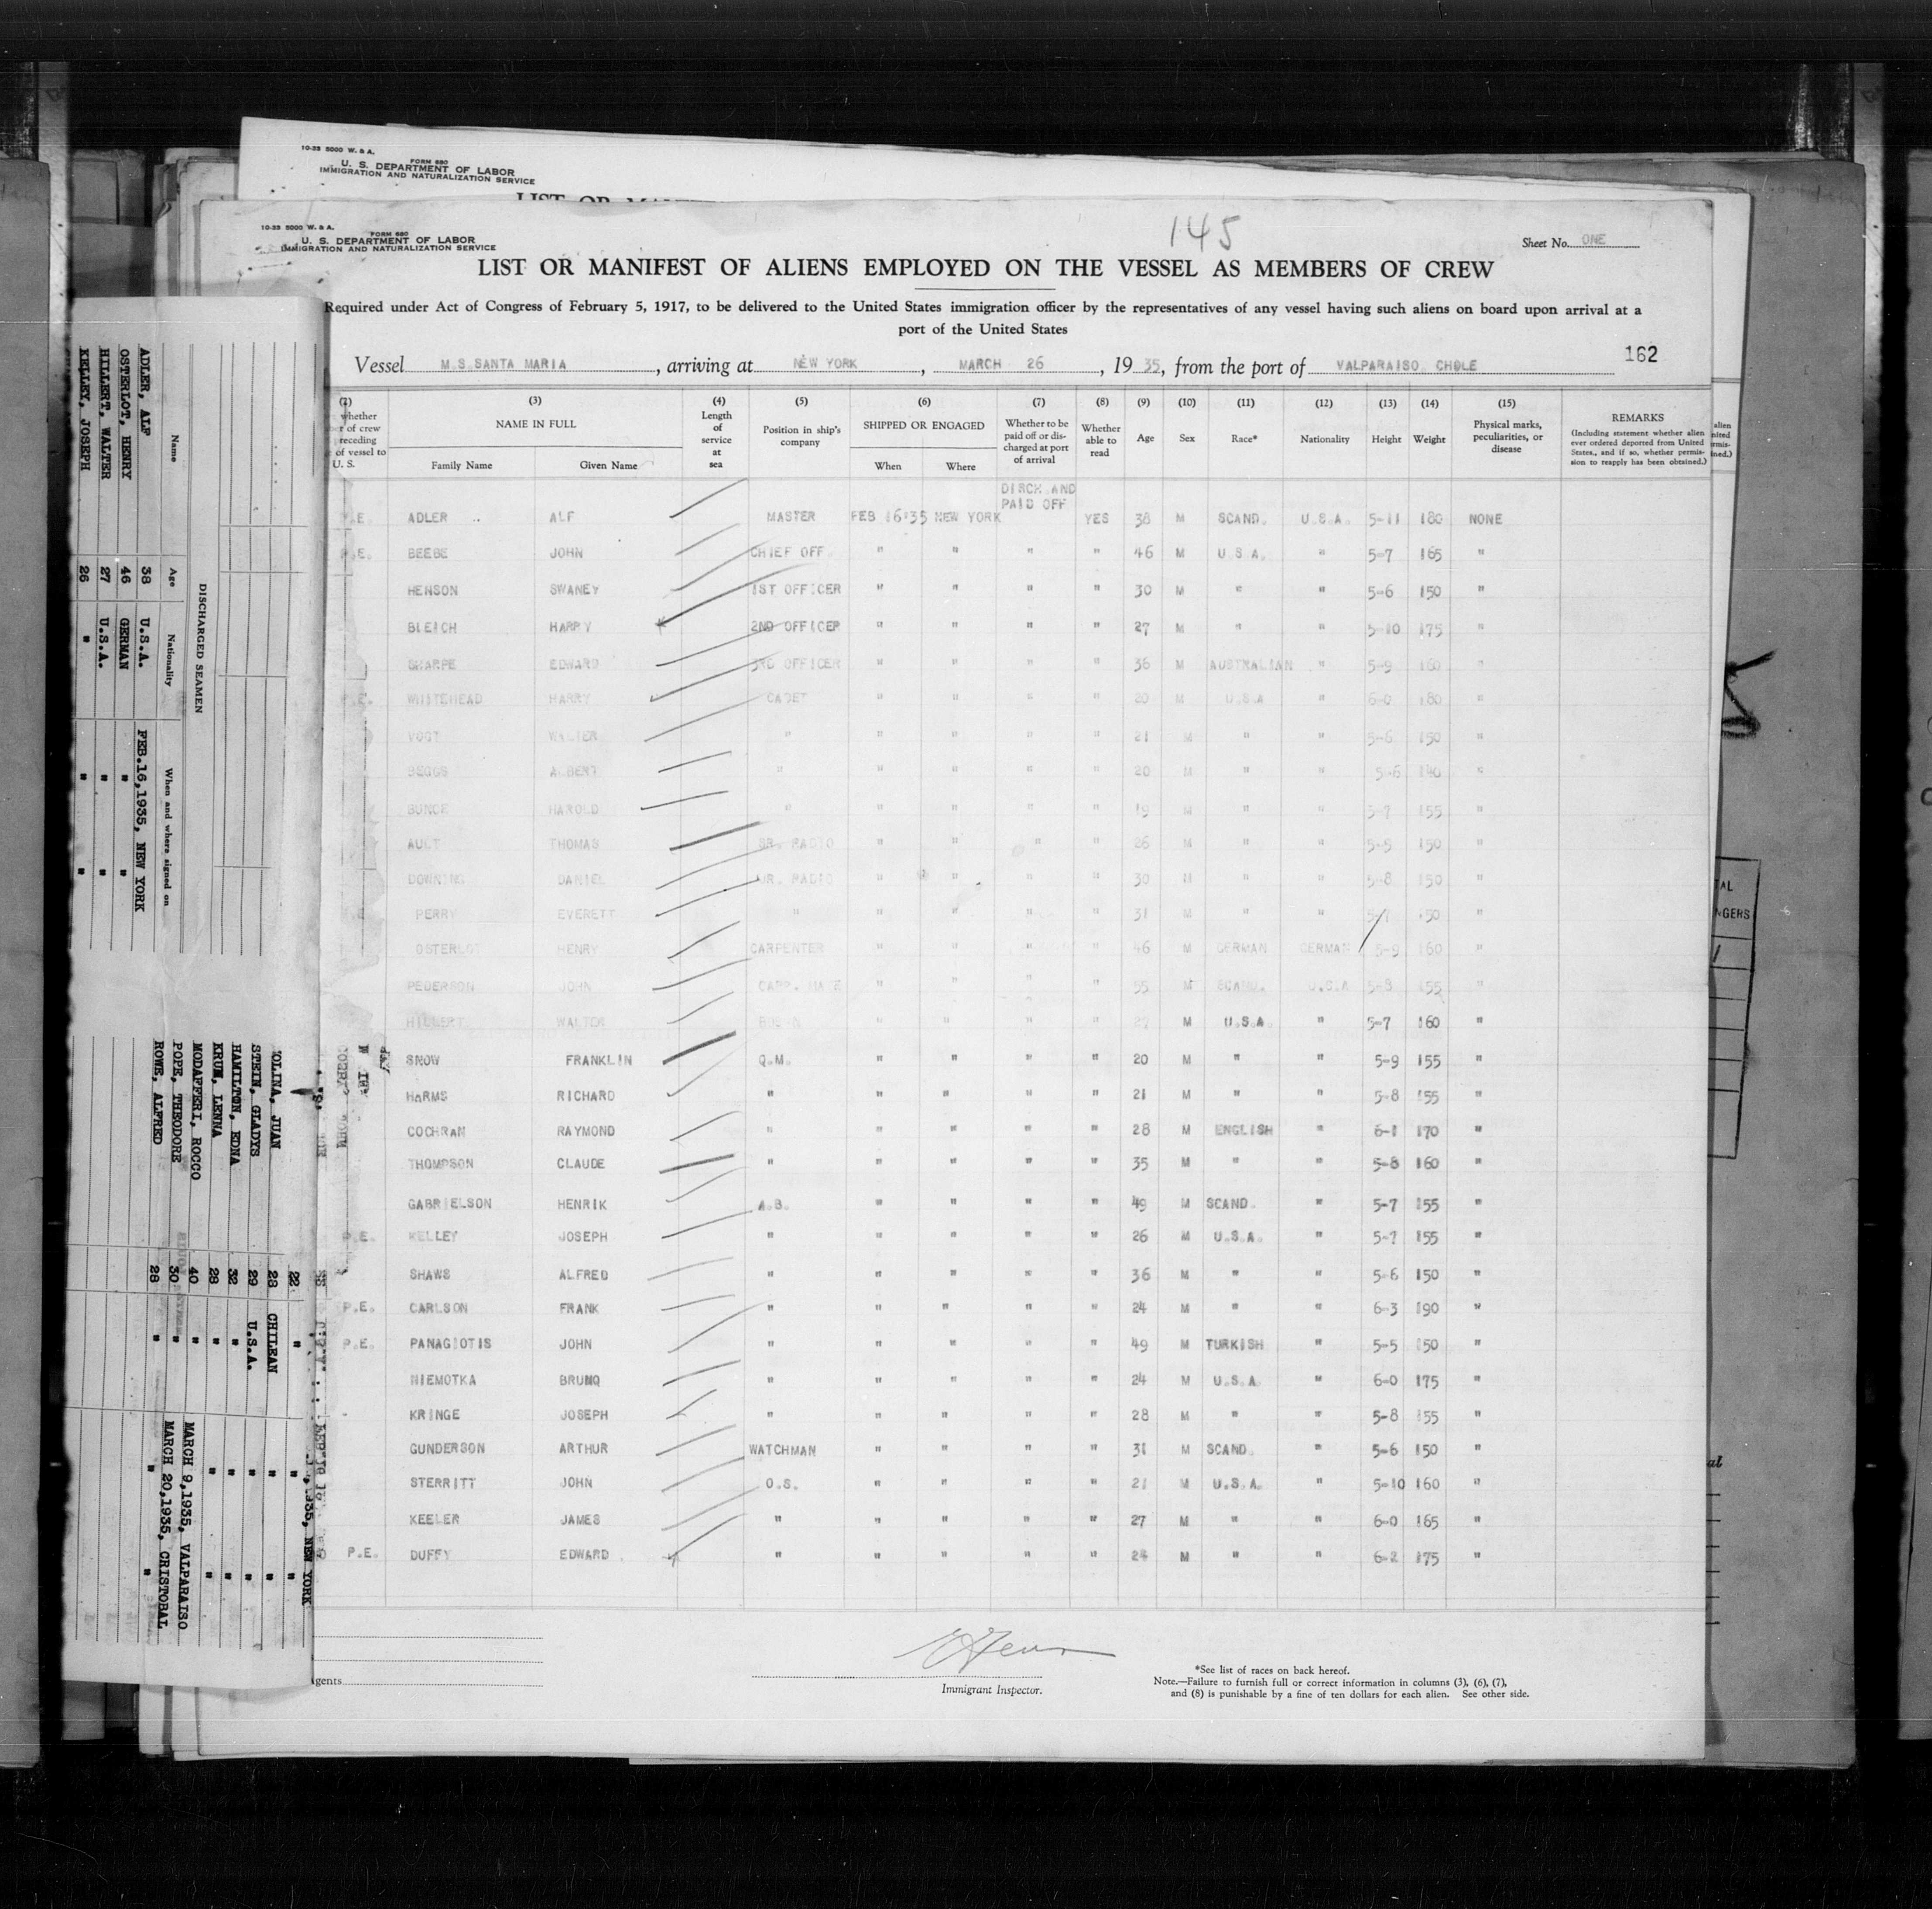 10-33 5000 W. & A.
FORM 680
U. S. DEPARTMENT OF LABOR
IMMIGRATION AND NATURALIZATION SERVICE
10-33 5000 W. & A.
FORM 680
U. S. DEPARTMENT OF LABOR
IMMIGRATION AND NATURALIZATION SERVICE
145
Sheet No. ONE
LIST OR MANIFEST OF ALIENS EMPLOYED ON THE VESSEL AS MEMBERS OF CREW
Required under Act of Congress of February 5, 1917, to be delivered to the United States immigration officer by the representatives of any vessel having such aliens on board upon arrival at a
port of the United States
162
Vessel M.S.SANTA MARIA, arriving at NEW YORK, MARCH 26, 1935, from the port of VALPARAISO CHOLE
(2) whether of crew preceding of vessel to U. S.
(3) NAME IN FULL Family Name Given Name
(4) Length of service at sea
(5) Position in ship's company
(6) SHIPPED OR ENGAGED When Where
(7) Whether to be paid off or discharged at port of arrival
(8) Whether able to read
(9) Age
(10) Sex
(11) Race*
(12) Nationality
(13) Height
(14) Weight
(15) Physical marks, peculiarities, or disease
REMARKS (Including statement whether alien ever ordered deported from United States, and if so, whether permission to reapply has been obtained.)
DISCH AND
PAID OFF
P.E. ADLER ALF MASTER FEB 16'35 NEW YORK YES 38 M SCAND. U.S.A. 5-11 180 NONE
P.E. BEEBE JOHN CHIEF OFF " " " " 46 M U.S.A. " 5-7 165 "
HENSON SWANEY 1ST OFFICER " " " " 30 M " " 5-6 150 "
BLEICH HARRY 2ND OFFICER " " " " 27 M " " 5-10 175 "
SHARPE EDWARD 3RD OFFICER " " " " 36 M AUSTRALIAN " 5-9 160 "
P.E. WHITEHEAD HARRY CADET " " " " 20 M U.S.A " 6-0 180 "
VOGT WALTER " " " " " 21 M " " 5-6 150 "
BEGGS ALBERT " " " " " 20 M " " 5-6 140 "
BUNCE HAROLD " " " " " 19 M " " 5-7 155 "
AULT THOMAS SR. RADIO " " " " 26 M " " 5-5 150 "
DOWNING DANIEL JR. RADIO " " " " 30 M " " 5-8 150 "
PERRY EVERETT " " " " " 31 M " " 5-7 150 "
OSTERLOT HENRY CARPENTER " " " " 46 M GERMAN GERMAN 5-9 160 "
PEDERSON JOHN CARP. MATE " " " " 55 M SCAND. U.S.A 5-8 155 "
HILLERT WALTER " " " " 27 M U.S.A. " 5-7 160 "
SNOW FRANKLIN Q.M. " " " " 20 M " " 5-9 155 "
HARMS RICHARD " " " " " 21 M " " 5-8 155 "
COCHRAN RAYMOND " " " " " 28 M ENGLISH " 6-1 170 "
THOMPSON CLAUDE " " " " " 35 M " " 5-8 160 "
GABRIELSON HENRIK A.B. " " " " 49 M SCAND. " 5-7 155 "
P.E. KELLEY JOSEPH " " " " " 26 M U.S.A. " 5-7 155 "
SHAWS ALFRED " " " " " 36 M " " 5-6 150 "
P.E. CARLSON FRANK " " " " " 24 M " " 6-3 190 "
P.E. PANAGIOTIS JOHN " " " " " 49 M TURKISH " 5-5 150 "
NIEMOTKA BRUNO " " " " " 24 M U.S.A. " 6-0 175 "
KRINGE JOSEPH " " " " " 28 M " " 5-8 155 "
GUNDERSON ARTHUR WATCHMAN " " " " 31 M SCAND. " 5-6 150 "
STERRITT JOHN O.S. " " " " 21 M U.S.A. " 5-10 160 "
KEELER JAMES " " " " " 27 M " " 6-0 165 "
P.E. DUFFY EDWARD " " " " " 24 M " " 6-2 175 "
gents
Immigrant Inspector.
*See list of races on back hereof.
Note.—Failure to furnish full or correct information in columns (3), (6), (7),
and (8) is punishable by a fine of ten dollars for each alien. See other side.
DISCHARGED SEAMEN
Name Age Nationality When and where signed on
ADLER, ALF 38 U.S.A. FEB.16,1935, NEW YORK
OSTERLOT, HENRY 46 GERMAN " "
HILLERT, WALTER 27 U.S.A. " "
KELLEY, JOSEPH 26 " " "
22 " 1935, NEW YORK
OLINA, JUAN 28 CHILEAN " "
STEIN, GLADYS 29 U.S.A. " "
HAMILTON, EDNA 32 " " "
KRUM, LENNA 28 " " "
MODAFFERI, ROCCO 40 " MARCH 9,1935, VALPARAISO
POPE, THEODORE 30 " MARCH 20,1935, CRISTOBAL
ROWE, ALFRED 28 " " "